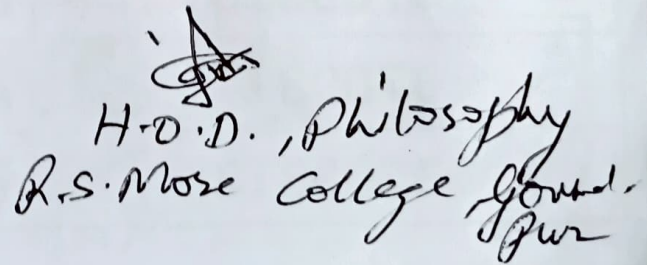 H.O.D., Philosophy
R.S. More College, Govind.
Pur